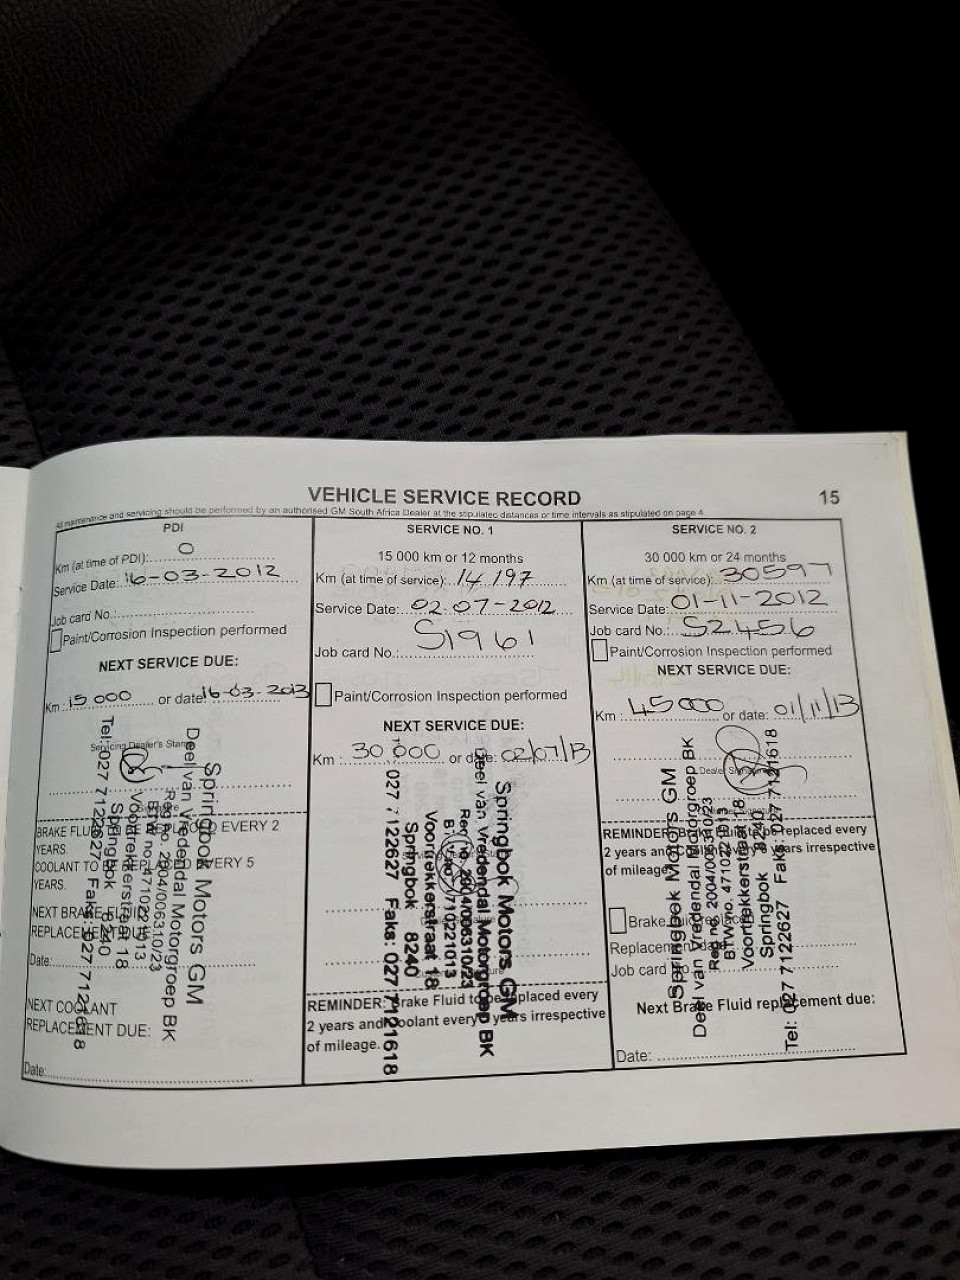 VEHICLE SERVICE RECORD
15
All maintenance and servicing should be performed by an authorised GM South Africa Dealer at the stipulated distances or time intervals as stipulated on page 4.
PDI
Km (at time of PDI): 0
Service Date: 16-03-2012
Job card No.:
Paint/Corrosion Inspection performed
NEXT SERVICE DUE:
Km : 15 000 or date 16-03-2013
Servicing Dealer's Stamp
BRAKE FLUID EVERY 2
YEARS.
COOLANT TO BE EVERY 5
YEARS.
NEXT BRAKE FLUID
REPLACEMENT DUE:
Date:
NEXT COOLANT
REPLACEMENT DUE:
Date:
Springbok Motors GM
Deel van Vredendal Motorgroep BK
Reg no. 2004/006310/23
BTW no. 4710221013
Voortrekkerstraat 18
Springbok 8240
Tel: 027 7122627 Faks: 027 7121618
SERVICE NO. 1
15 000 km or 12 months
Km (at time of service): 14 197
Service Date: 02-07-2012
Job card No.: S1961
Paint/Corrosion Inspection performed
NEXT SERVICE DUE:
Km : 30 000 or date: 02/07/13
REMINDER: Brake Fluid to be replaced every
2 years and Coolant every years irrespective
of mileage.
Springbok Motors GM
Deel van Vredendal Motorgroep BK
Reg no. 2004/006310/23
B.T.W no. 4710221013
Voortrekkerstraat 18
Springbok 8240
027 7122627 Faks: 027 7121618
SERVICE NO. 2
30 000 km or 24 months
Km (at time of service): 30597
Service Date: 01-11-2012
Job card No.: S2456
Paint/Corrosion Inspection performed
NEXT SERVICE DUE:
Km : 45000 or date: 01/11/13
Dealer Signature
REMINDER: Brake Fluid to be replaced every
2 years and Coolant every years irrespective
of mileage
Brake fluid replaced
Replacement date
Job card
Next Brake Fluid replacement due:
Date:
Springbok Motors GM
Deel van Vredendal Motorgroep BK
Reg no. 2004/006310/23
B.T.W no. 4710221013
Voortrekkerstraat 18
Springbok 8240
Tel: 027 7122627 Faks: 027 7121618